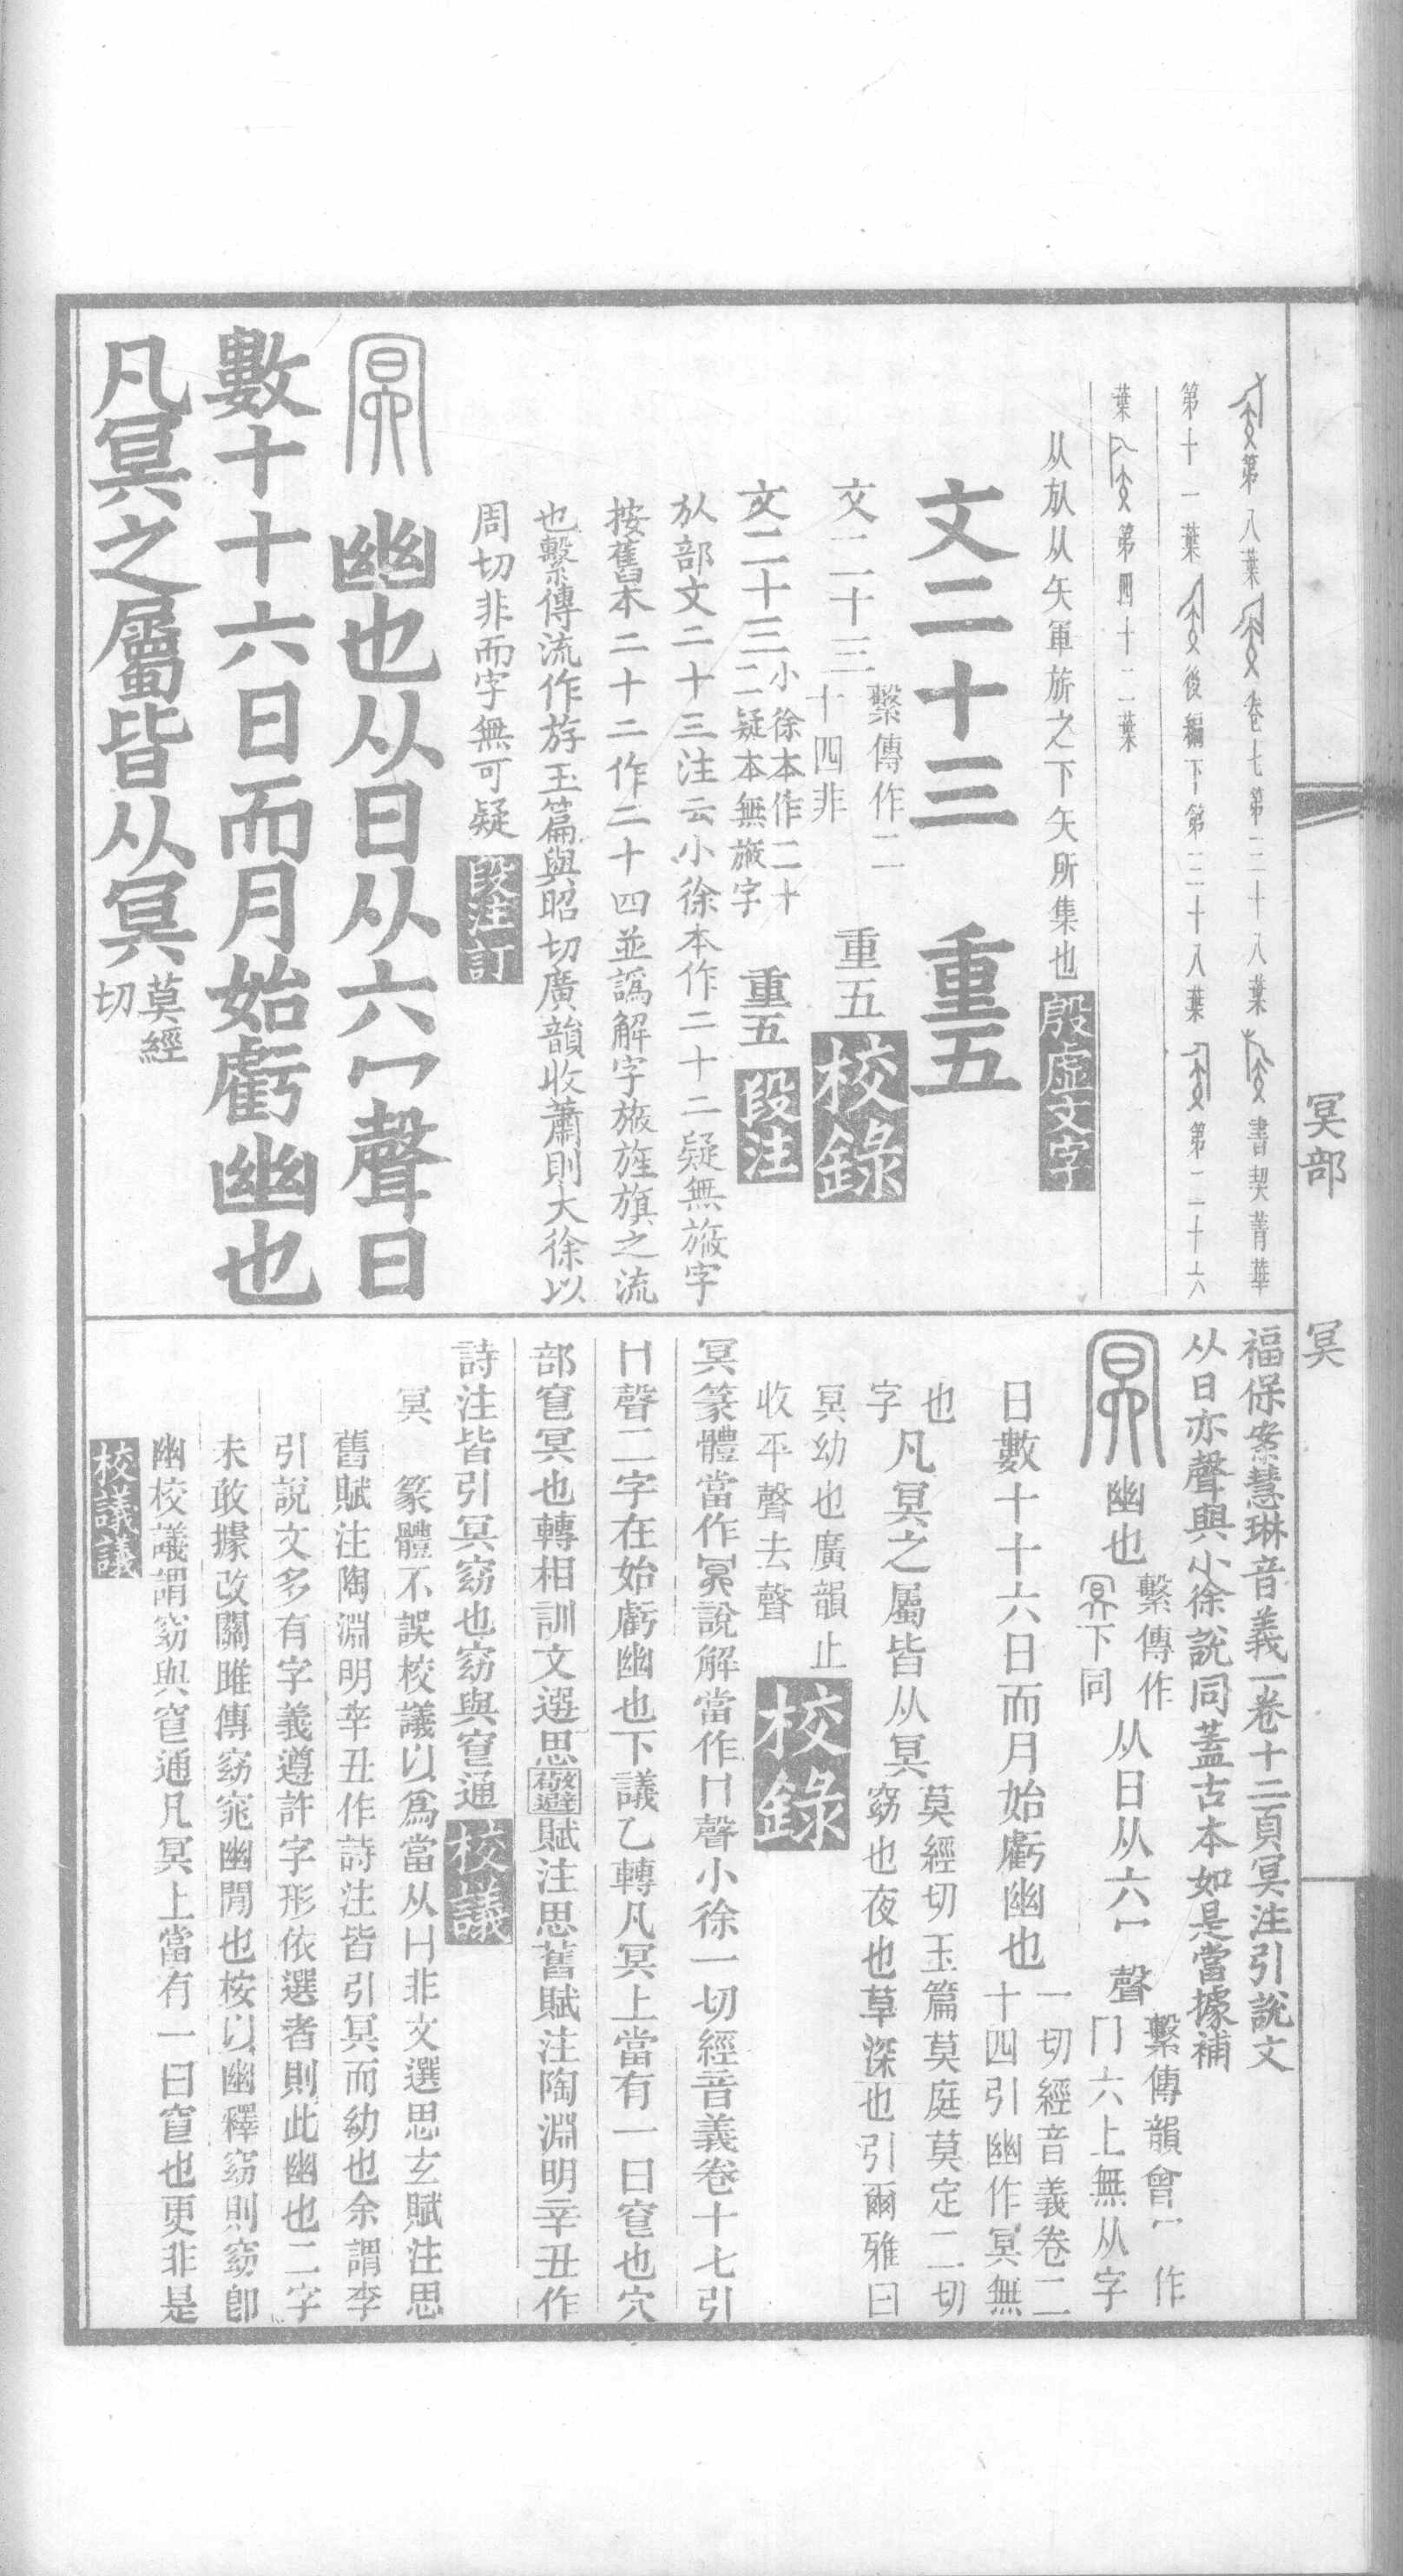 第八葉 卷七第二十八葉 書契菁華
第十一葉 後編下第三十八葉 第二十六
葉 第四十二葉
从㫃从矢軍旂之下矢所集也 殷虛文字
文二十三 重五
文二十三 繫傳作二十四非 重五 校錄
文二十三 小徐本作二十二疑本無旇字 重五 段注
㫃部文二十三注云小徐本作二十二疑無旇字
按舊本二十二作二十四並譌解字旇旌旗之流
也繫傳流作斿玉篇與昭切廣韻收蕭則大徐以
周切非而字無可疑 段注訂
冥 幽也从日从六冖聲日
數十十六日而月始虧幽也
凡冥之屬皆从冥 莫經切
冥部 冥
福保案慧琳音義一卷十二頁冥注引說文
从日亦聲與小徐說同蓋古本如是當據補
冥 幽也 繫傳作冥下同 从日从六冖聲 繫傳韻會冖作冂六上無从字
日數十十六日而月始虧幽也 一切經音義卷二十四引幽作冥無
也字 凡冥之屬皆从冥 莫經切玉篇莫庭莫定二切窈也夜也草深也引爾雅曰
冥幼也廣韻止收平聲去聲 校錄
冥篆體當作冥說解當作冂聲小徐一切經音義卷十七引
冂聲二字在始虧幽也下議乙轉凡冥上當有一曰窅也穴
部窅冥也轉相訓文選思舊賦注思舊賦注陶淵明辛丑作
詩注皆引冥窈也窈與窅通 校議
冥 篆體不誤校議以爲當从冂非文選思玄賦注思
舊賦注陶淵明辛丑作詩注皆引冥而幼也余謂李
引說文多有字義遵許字形依選者則此幽也二字
未敢據改關雎傳窈窕幽閒也桉以幽釋窈則窈卽
幽校議謂窈與窅通凡冥上當有一曰窅也更非是
校議議